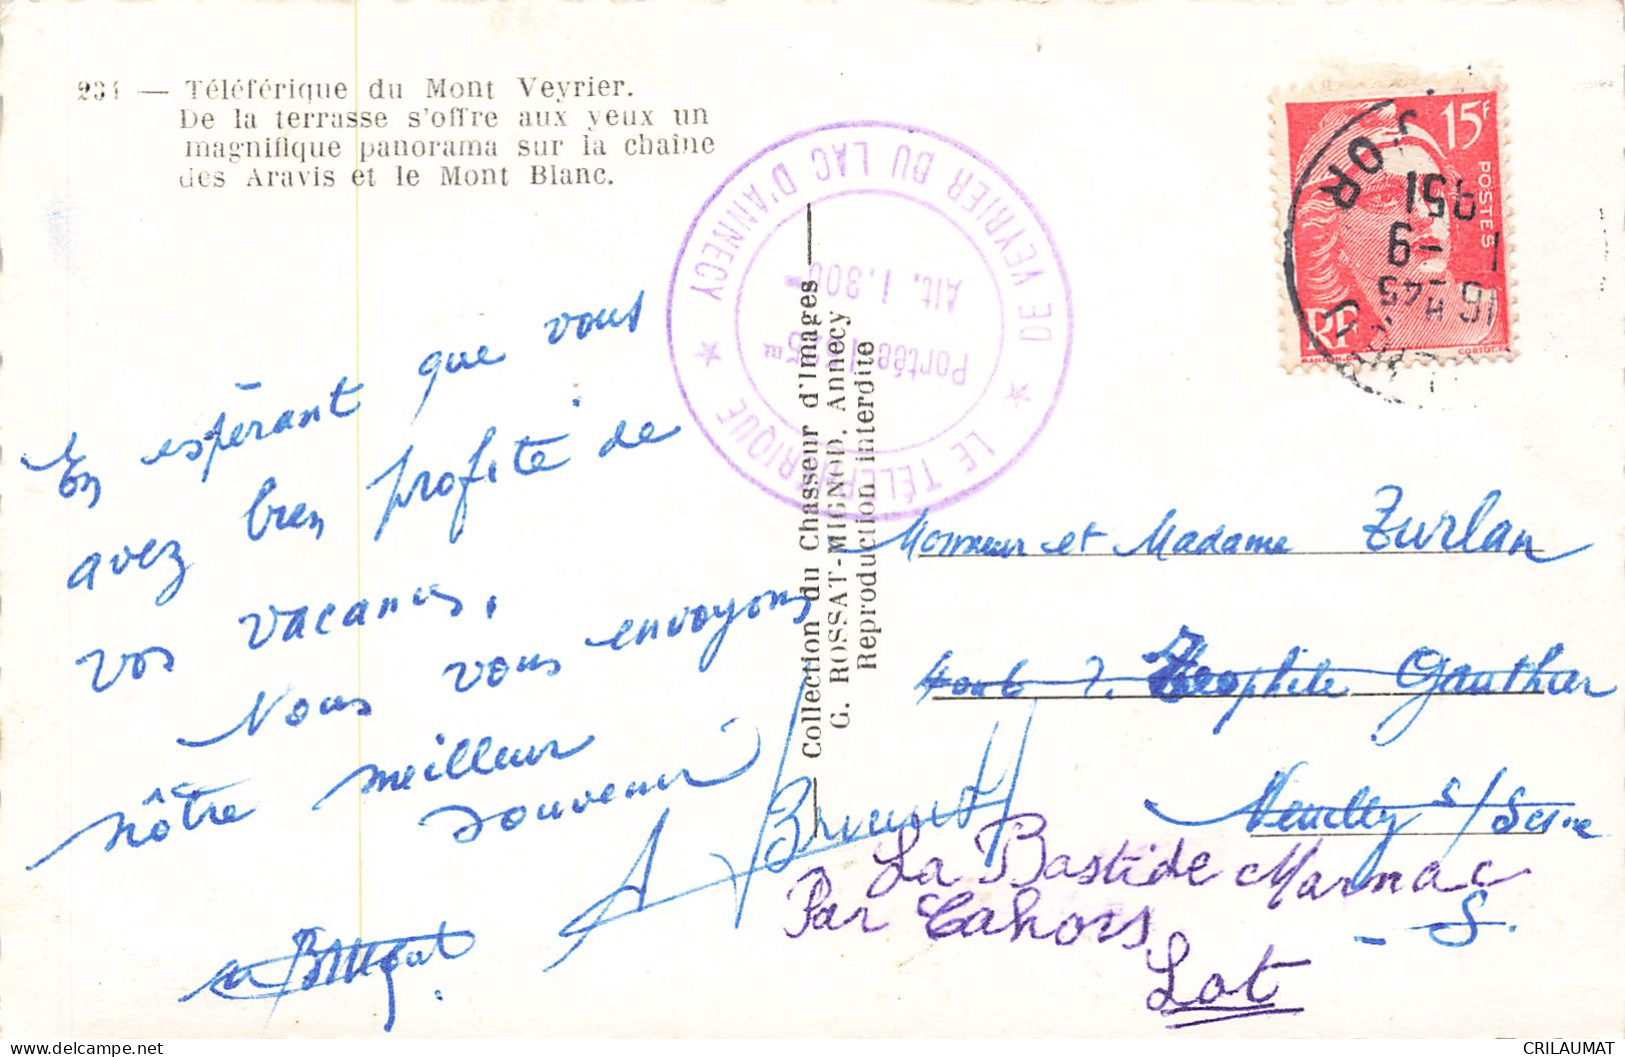 231 — Téléférique du Mont Veyrier.
De la terrasse s'offre aux yeux un
magnifique panorama sur la chaîne
des Aravis et le Mont Blanc.
En espèrant que vous
avez bien profité de
vos vacances.
Nous vous envoyons
nôtre meilleur
souvenir
LE TÉLÉFÉRIQUE DE VEYRIER DU LAC D'ANNECY
Alt. 1.300 m
Portée 1.625 m
Collection du Chasseur d'Images
G. ROSSAT-MIGNOD, Annecy
Reproduction interdite
15F
POSTES
RF
16 H 45
1 -9
951
Monsieur et Madame Zurlan
7. Théophile Gauthier
Neuilly s/ Seine
- S.
La Bastide Marnac
Par Cahors
Lot
delcampe.net
CRILAUMAT